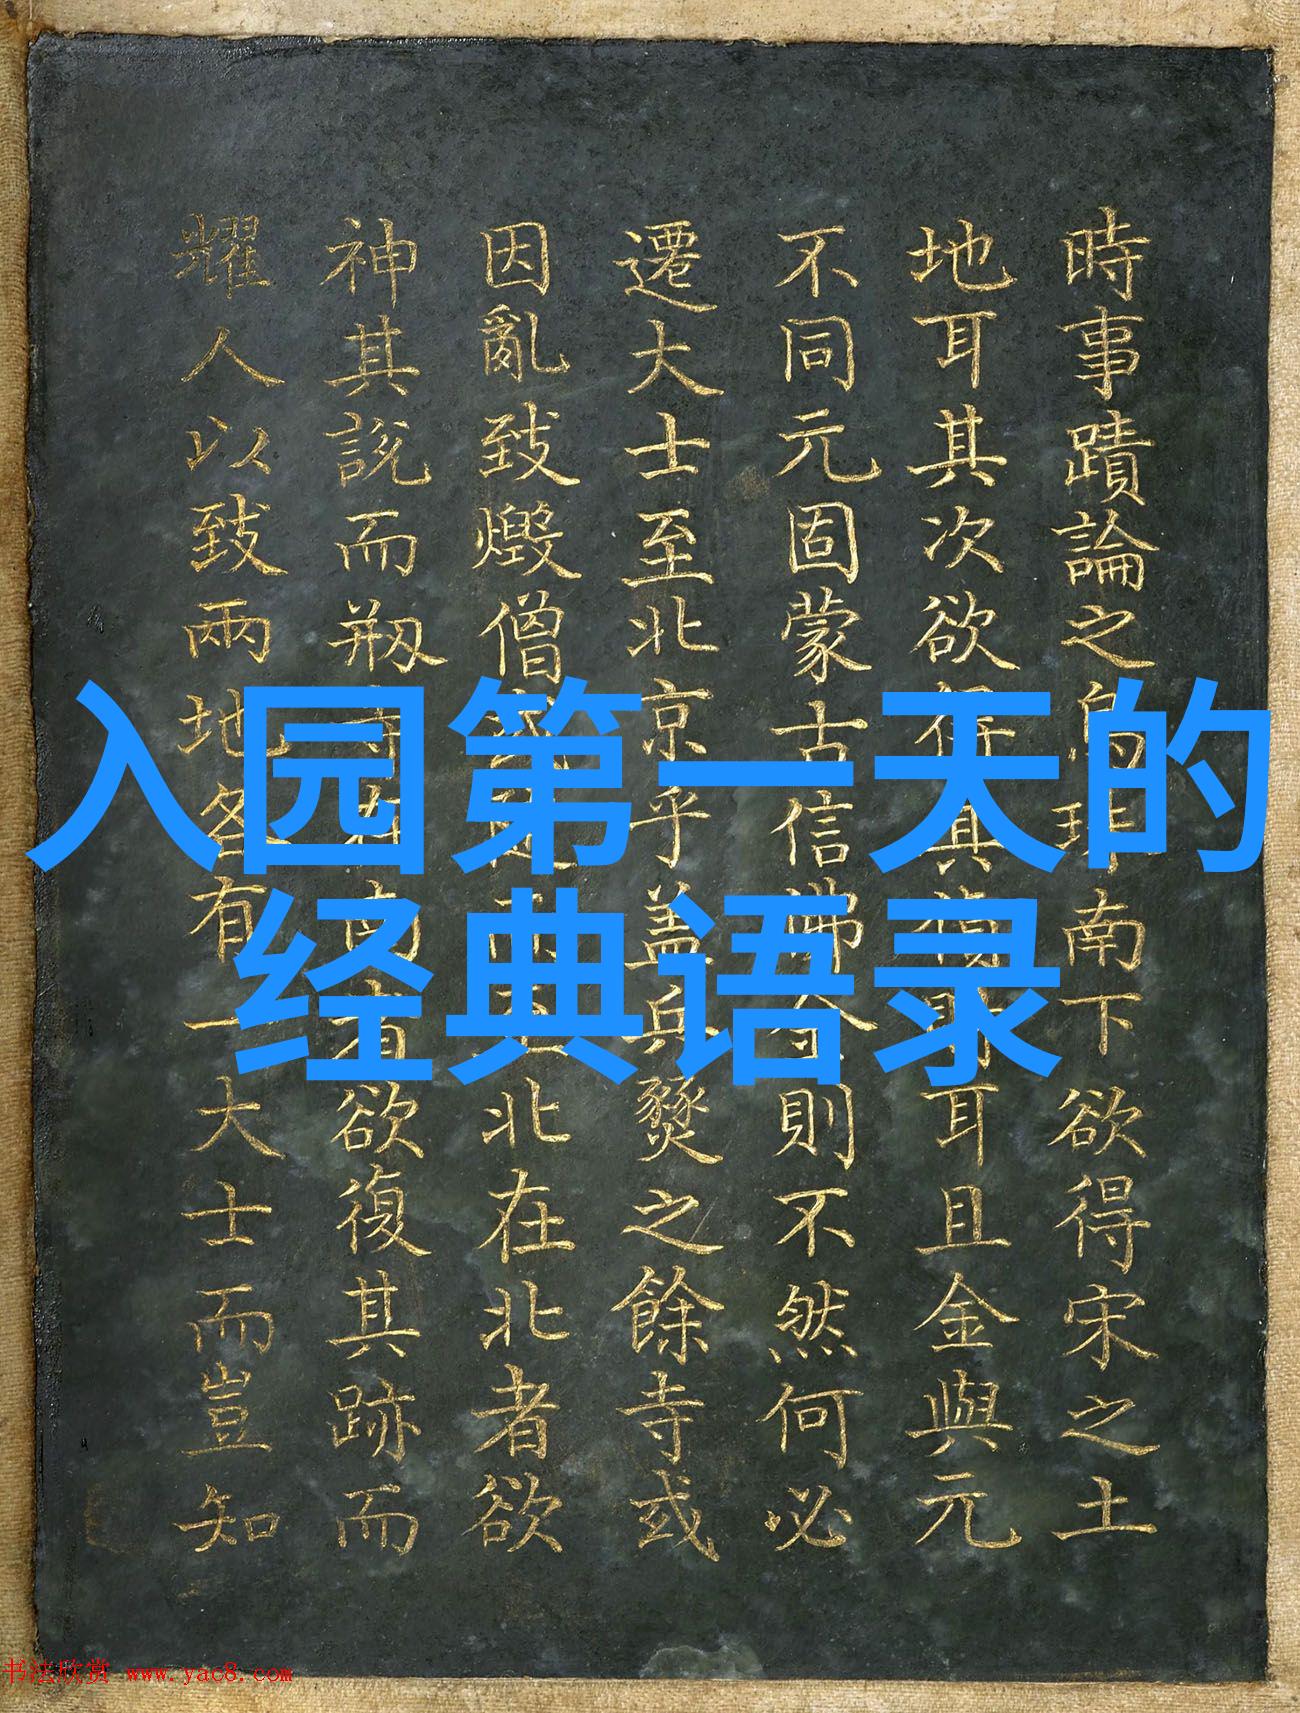 入园第一天的
经典语录
時事蹟論之南下欲得宋之土
地耳其次欲得其耳且金與元
不同元固蒙古信佛金則不然何必
遷大士至北京乎蓋兵燹之餘寺或
因亂致燬僧北在北者欲
神其說而剏南者欲復其跡而
耀人以致兩地各有一大士而豈知
书法欣赏 www.yac8.com